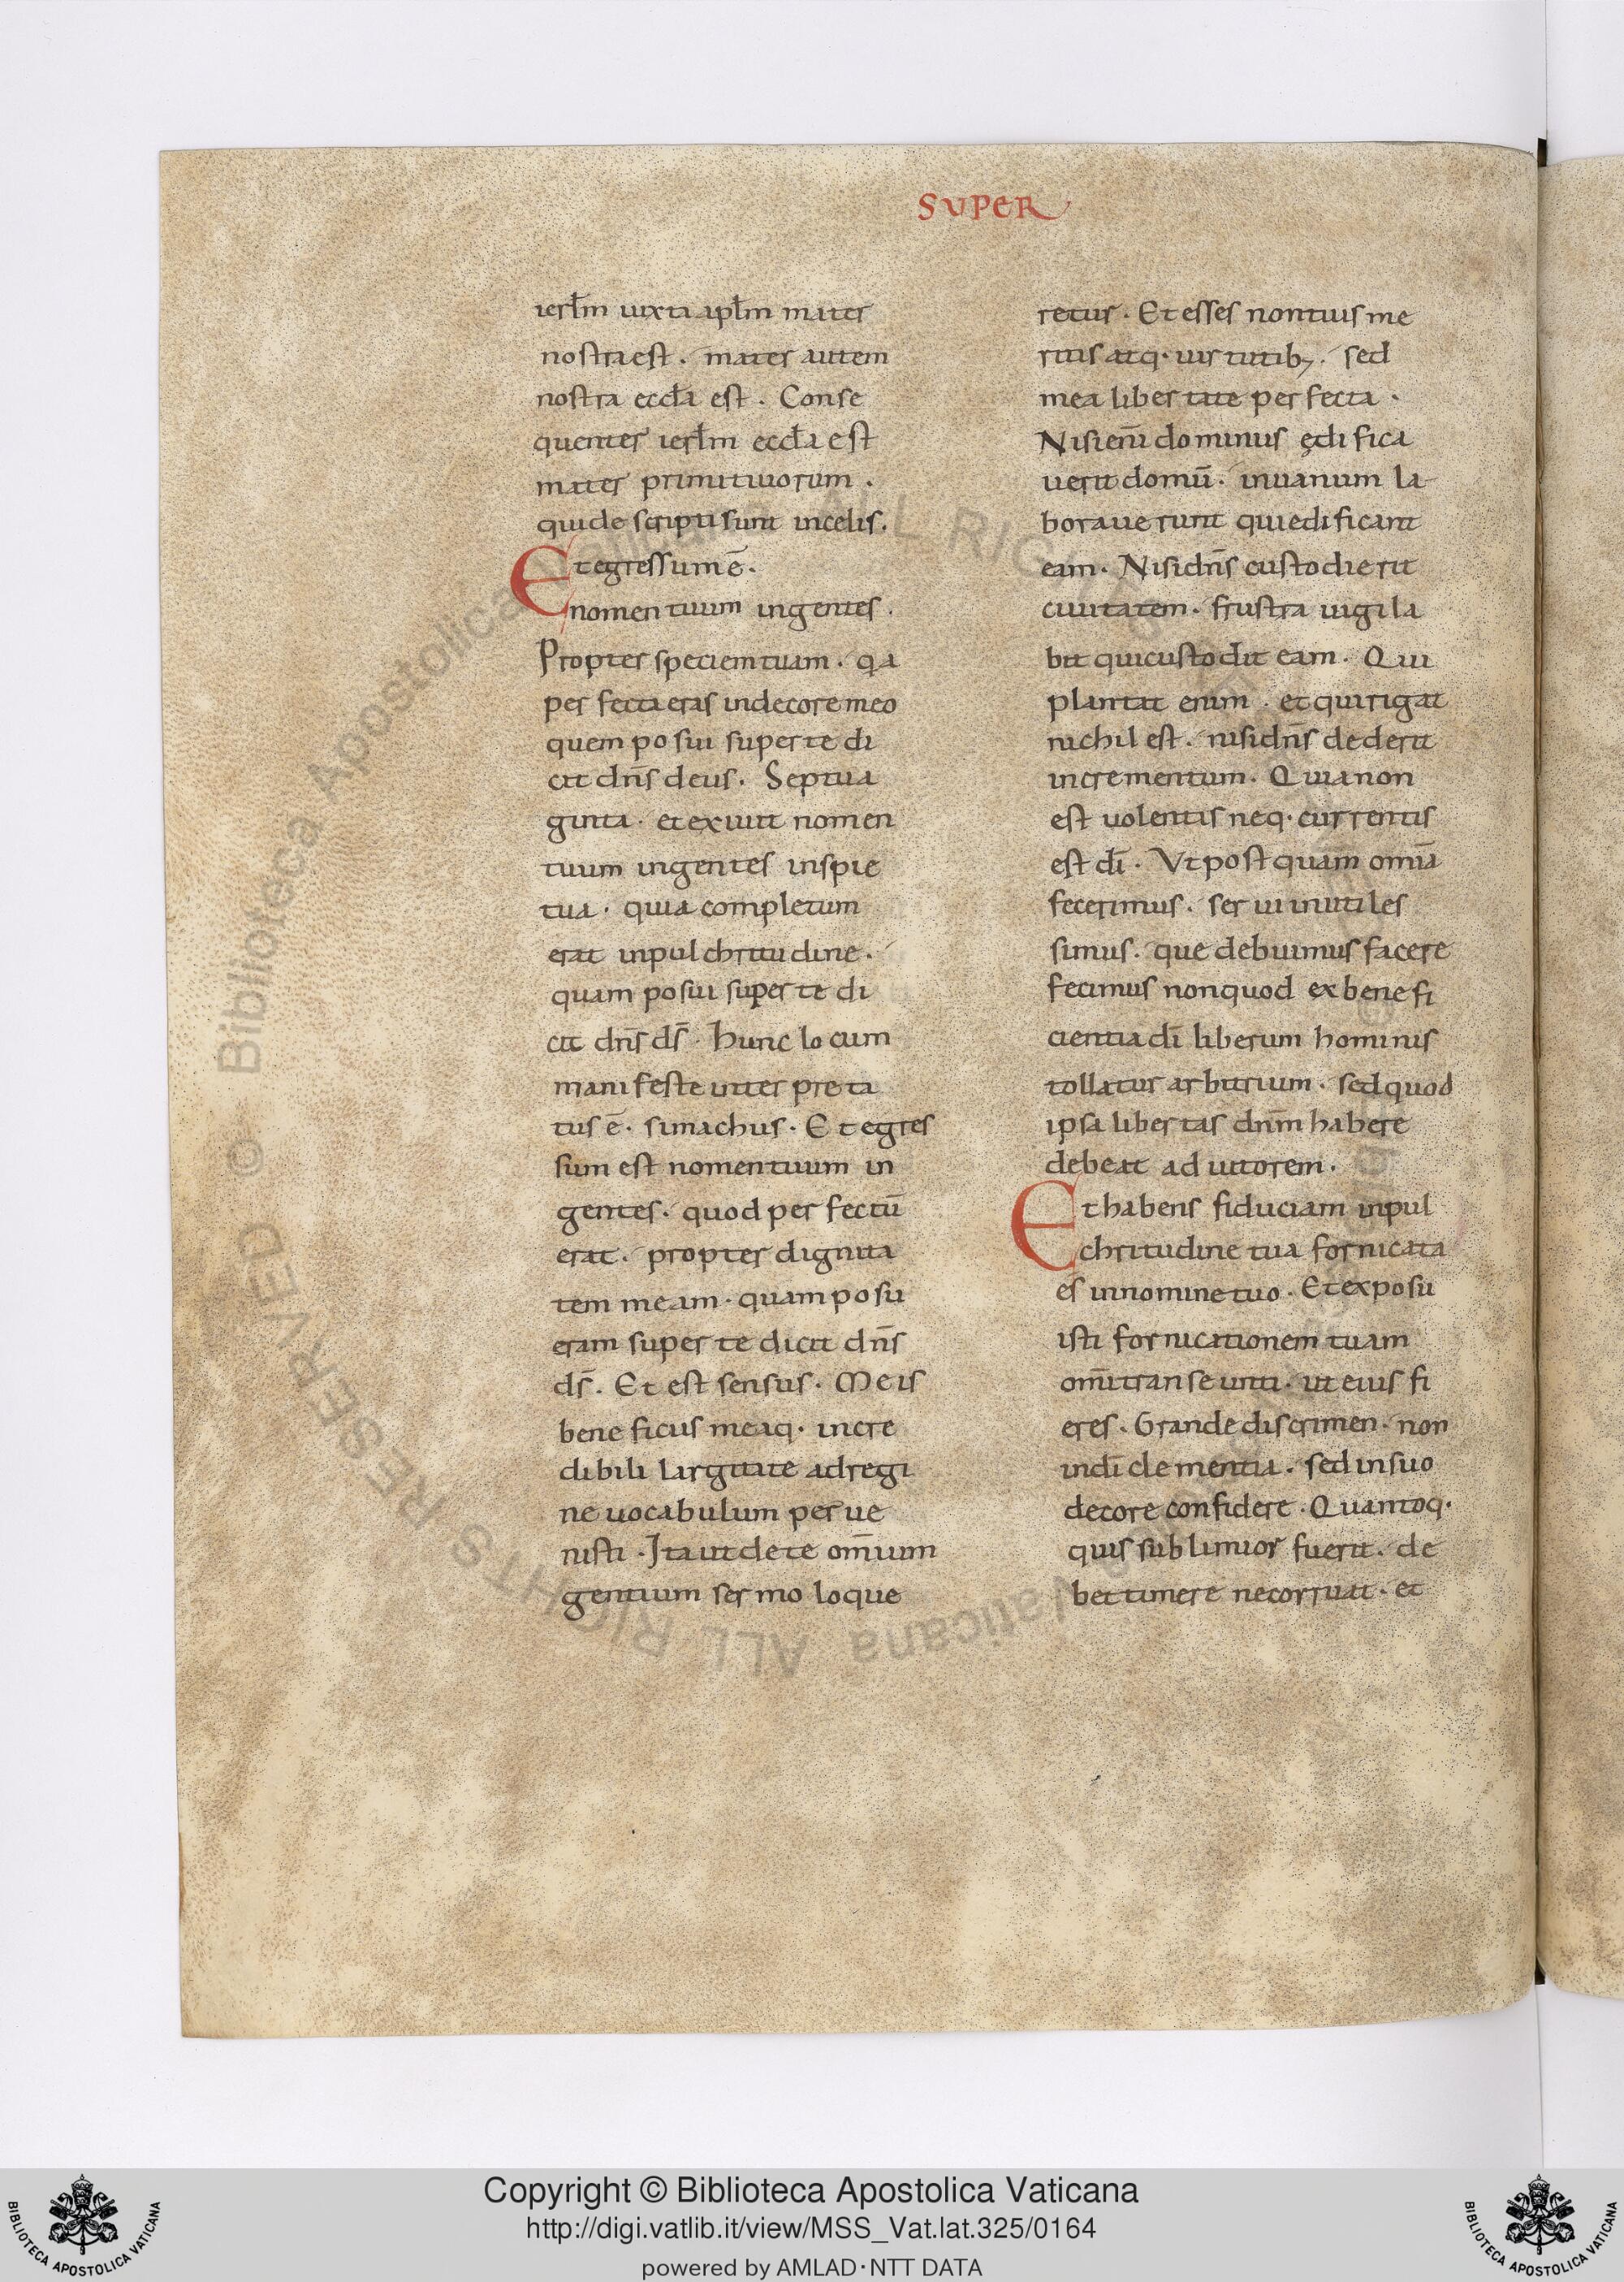 SUPER
ierłm iuxta aptm mater
nostra est. mater autem
nostra eccła est. Conse
quenter ierłm eccła est
mater primitiuorum.
qui descripti sunt in celis.
Et egressum ē.
nomen tuum in gentes.
Propter speciem tuam. qa
perfecta eras in decore meo
quem posui super te di
cit dns̄ deus. Septua
ginta. et exiuit nomen
tuum in gentes in spie
tua. quia completum
erat in pulchritudine.
quam posui super te di
cit dns̄ ds̄. hunc locum
manifeste interpreta
tus ē. simachus. Et egres
sum est nomen tuum in
gentes. quod perfectū
erat. propter dignita
tem meam. quam posu
eram super te dicit dns̄
ds̄. Et est sensus. Meis
beneficiis meaq. incre
dibili largitate ad regi
ne uocabulum perue
nisti. Ita ut de te om̄ium
gentium sermo loque
retur. Et esses non tuis me
ritis atq. uirtutib;. sed
mea libertate perfecta.
Nisi eni̅ dominus ędifica
uerit domū. in uanum la
borauerunt qui edificant
eam. Nisi dns̄ custodierit
ciuitatem. frustra uigila
bit qui custodit eam. Qui
plantat enim. et qui rigat
nichil est. nisi dns̄ dederit
incrementum. Quia non
est uolentis neq. currentis
est di̅. Vt postquam omi̅a
fecerimus. serui inutiles
simus. que debuimus facere
fecimus non quod ex benefi
cientia di̅ liberum hominis
tollatur arbitrium. sed quod
ipsa libertas dnm̄ habere
debeat adiutorem.
Et habens fiduciam in pul
chritudine tua fornicata
es in nomine tuo. Et exposu
isti fornicationem tuam
om̄i transeunti. ut eius fi
eres. Grande discrimen. non
in di̅ clementia. sed in suo
decore confidere. Quantoq.
quis sublimior fuerit. de
bet timere ne corruat. et
Copyright © Biblioteca Apostolica Vaticana
http://digi.vatlib.it/view/MSS_Vat.lat.325/0164
powered by AMLAD·NTT DATA